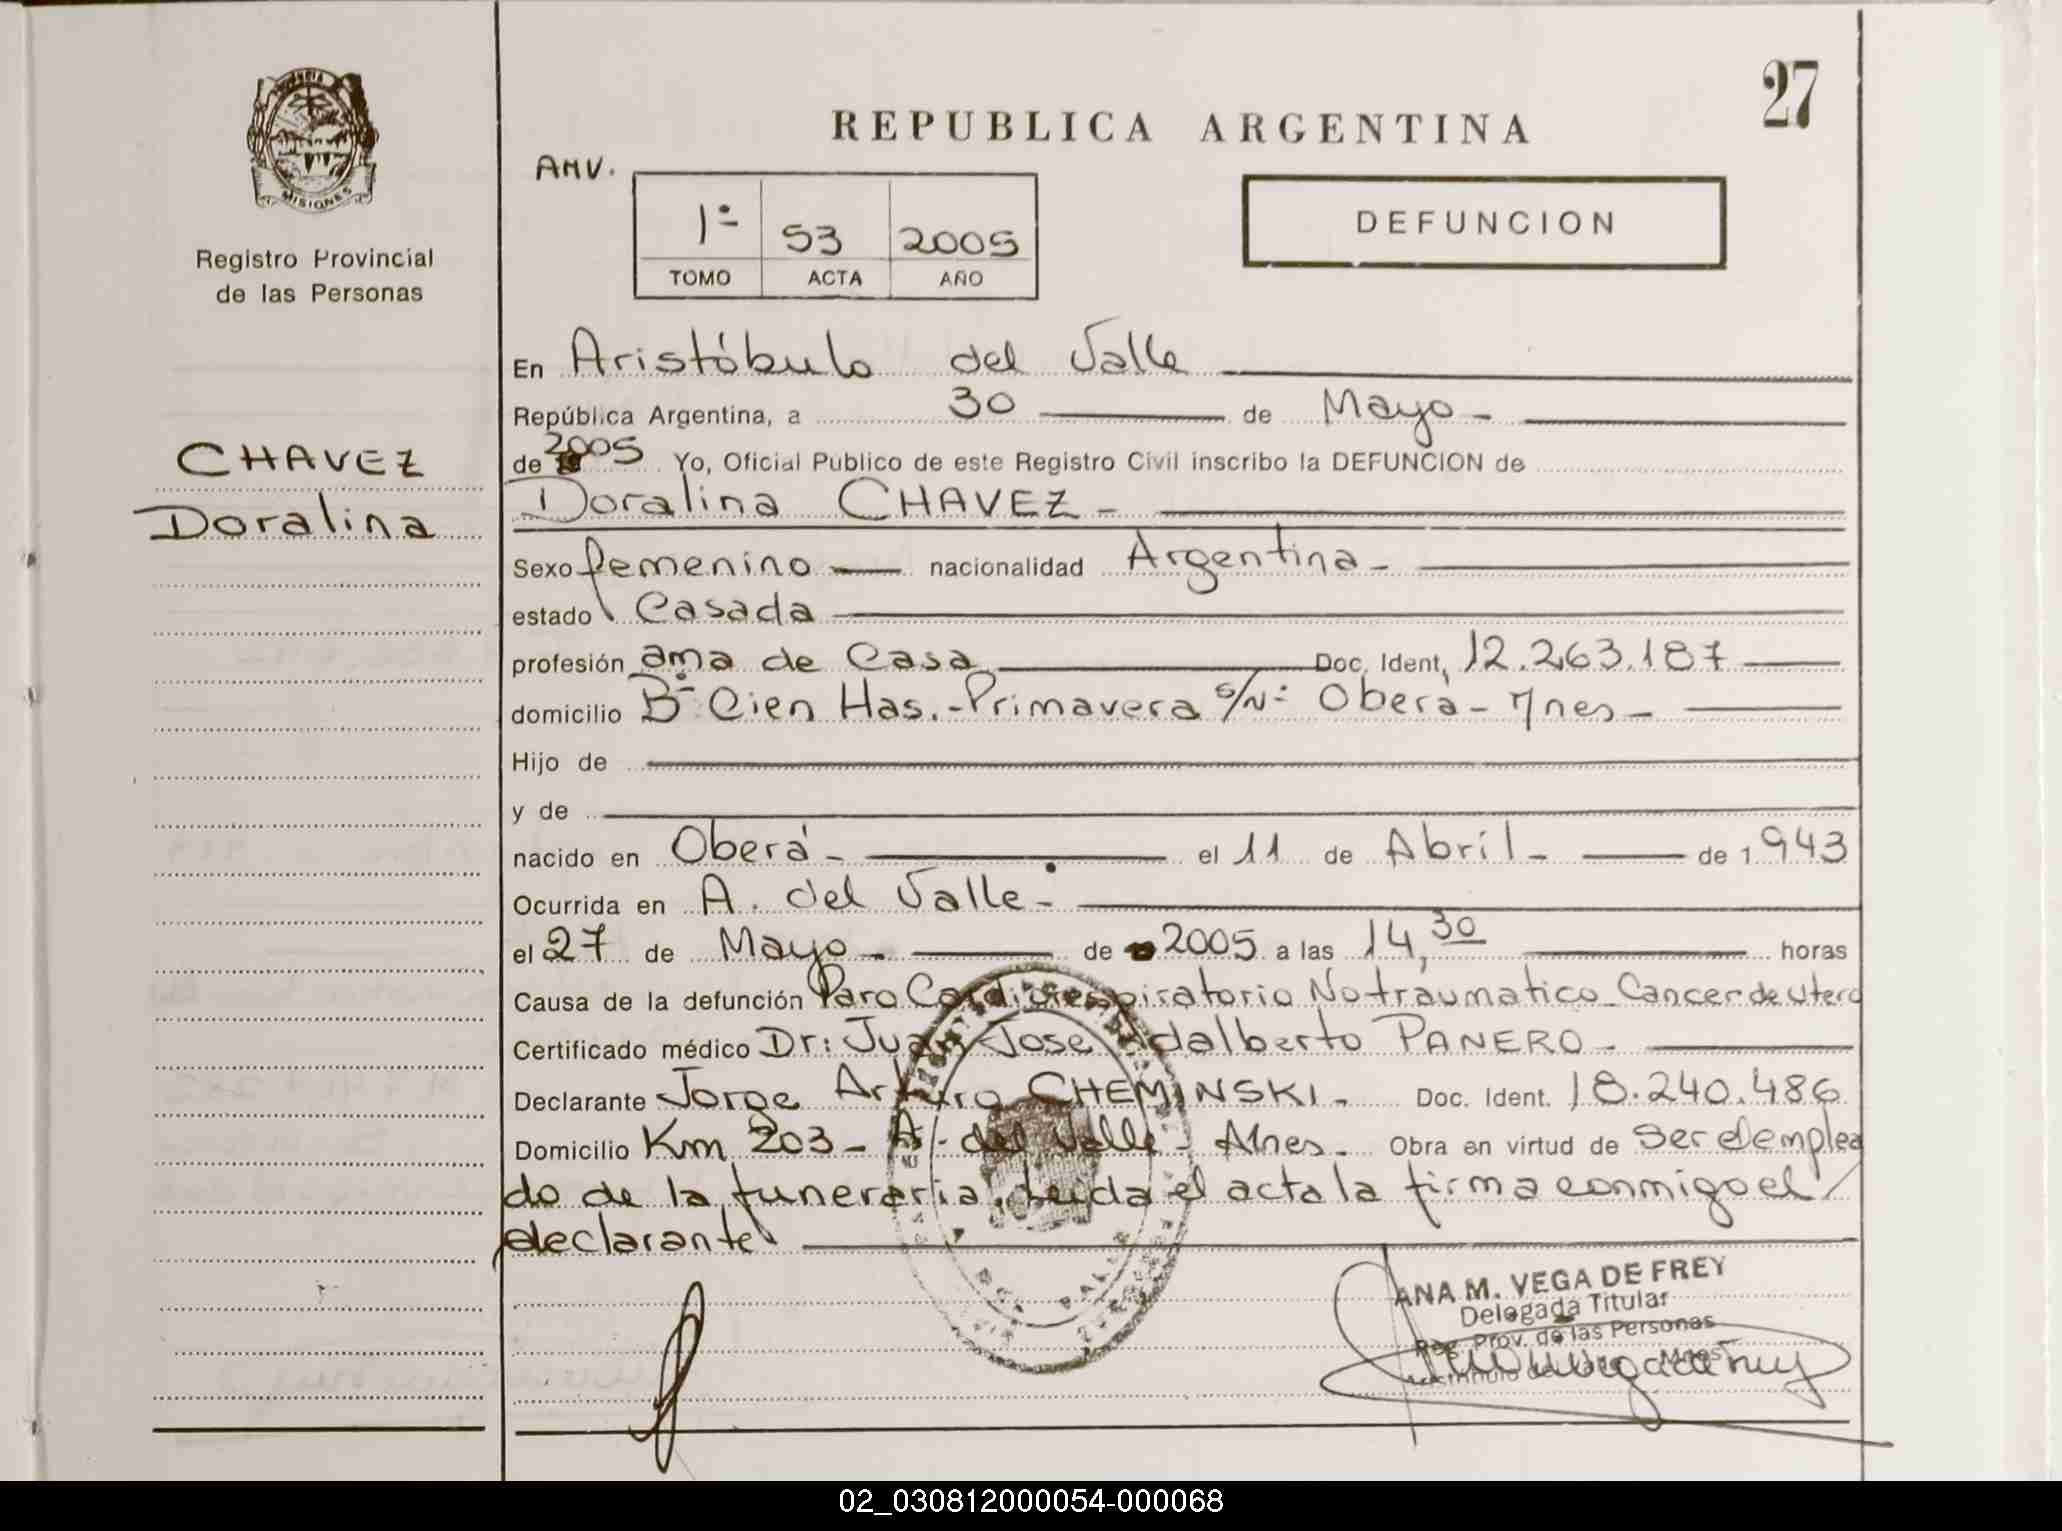 27
REPUBLICA ARGENTINA
MISIONES
Registro Provincial
de las Personas
AMV.
1º 53 2005
TOMO ACTA AÑO
DEFUNCION
En Aristóbulo del Valle
República Argentina, a 30 de Mayo -
de 2005 Yo, Oficial Publico de este Registro Civil inscribo la DEFUNCION de
CHAVEZ
Doralina
Doralina CHAVEZ -
Sexo femenino nacionalidad Argentina -
estado Casada
profesión ama de Casa Doc. Ident, 12.263.187
domicilio Bº Cien Has. - Primavera s/Nº Oberá - Mnes -
Hijo de
y de
nacido en Oberá - el 11 de Abril - de 1943
Ocurrida en A. del Valle -
el 27 de Mayo - de 2005 a las 14,30 horas
Causa de la defunción Paro Cardiorespiratorio No traumatico - Cancer de utero
Certificado médico Dr: Juan Jose Adalberto PANERO -
Declarante Jorge Arturo CHEMINSKI - Doc. Ident. 18.240.486
Domicilio Km 203 - A. del Valle - Mnes - Obra en virtud de ser el emplea
do de la funeraria. Leida el acta la firma conmigo el
declarante
ANA M. VEGA DE FREY
Delegada Titular
Reg. Prov. de las Personas
02_030812000054-000068